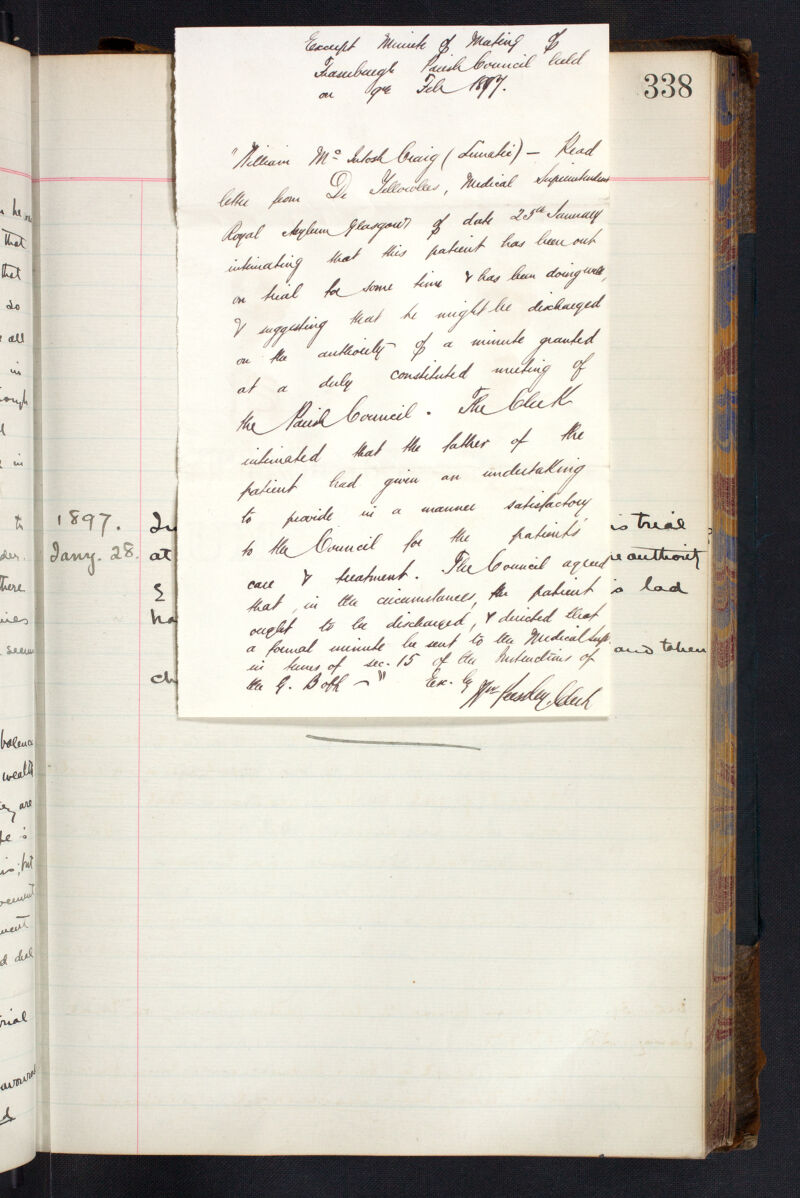 338
Excerpt Minute of Meeting of
Fraserburgh Parish Council held
on 9th Feb 1897.
"William Mc Intosh Craig (Lunatic) — Read
letter from Dr Yellowlees, Medical Superintendent
Royal Asylum Glasgow of date 25th January
intimating that this patient has been out
on trial for some time & has been doing well,
& suggesting that he might be discharged
on the authority of a minute granted
at a duly constituted meeting of
the Parish Council. The Clerk
intimated that the father of the
patient had given an undertaking
to provide in a manner satisfactory
to the Council for the patient's
care & treatment. The Council agreed
that, in the circumstances, the patient
ought to be discharged, & directed that
a formal minute be sent to the Medical Supt.
in terms of sec. 15 of the Instructions of
the G. B of L —" Ex. by
Clerk
1897.
Jany. 28.
is trial
at
authority
lad
and taken
that
that
so
all
in
to
there
seem
wealth
are